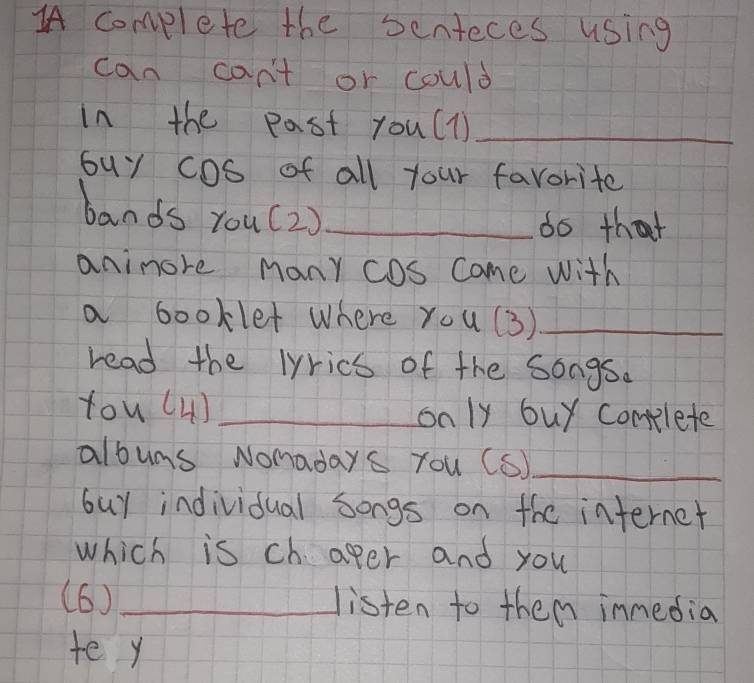 1A Complete the senteces using
can can't or could
in the Past you (1)
buy CDs of all your favorite
bands you (2) do that
animore Many CDs Came with
a booklet where you (3)
read the lyrics of the songs.
You (4) only buy Complete
albums Nomadays You (5)
buy individual songs on the internet
which is ch aper and you
(6) listen to them immedia
te y